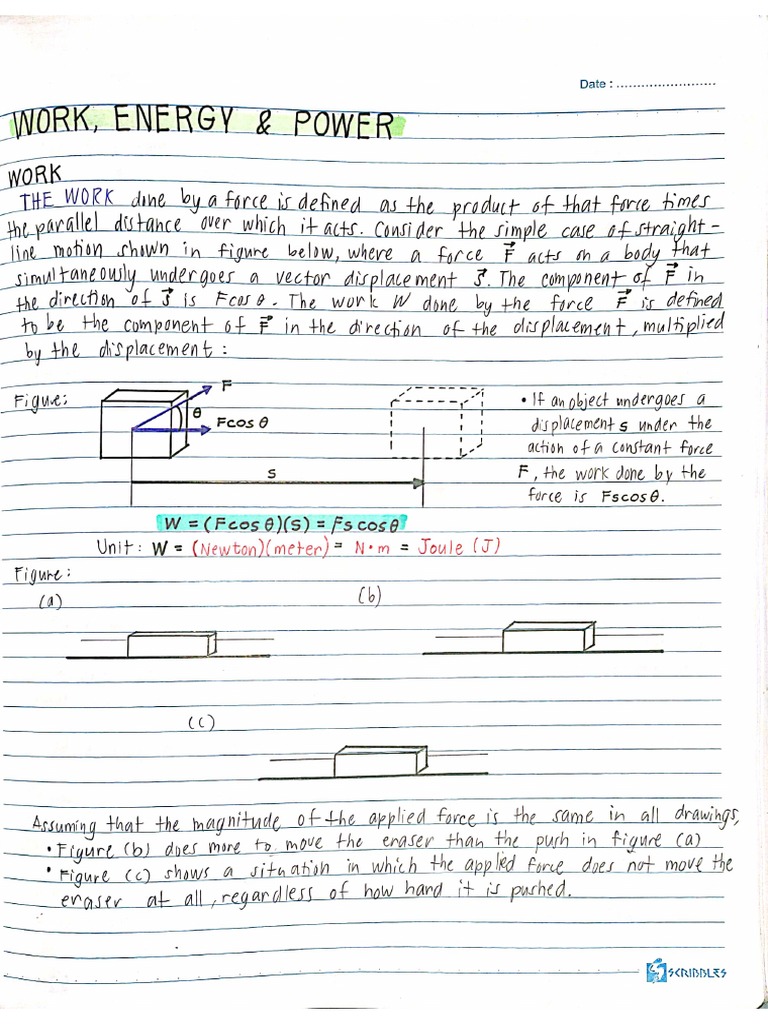 Date : ........................
WORK, ENERGY & POWER
WORK
THE WORK done by a force is defined as the product of that force times
the parallel distance over which it acts. Consider the simple case of straight-
line motion shown in figure below, where a force F⃗ acts on a body that
simultaneously undergoes a vector displacement s⃗. The component of F⃗ in
the direction of s⃗ is Fcosθ. The work W done by the force F⃗ is defined
to be the component of F⃗ in the direction of the displacement, multiplied
by the displacement:
Figure:
F
θ
Fcosθ
s
• If an object undergoes a
displacement s under the
action of a constant force
F, the work done by the
force is Fscosθ.
W = (Fcosθ)(s) = Fscosθ
Unit: W = (Newton)(meter) = N·m = Joule (J)
Figure:
(a)
(b)
(c)
Assuming that the magnitude of the applied force is the same in all drawings,
• Figure (b) does more to move the eraser than the push in figure (a)
• Figure (c) shows a situation in which the applied force does not move the
eraser at all, regardless of how hard it is pushed.
SCRIBBLES